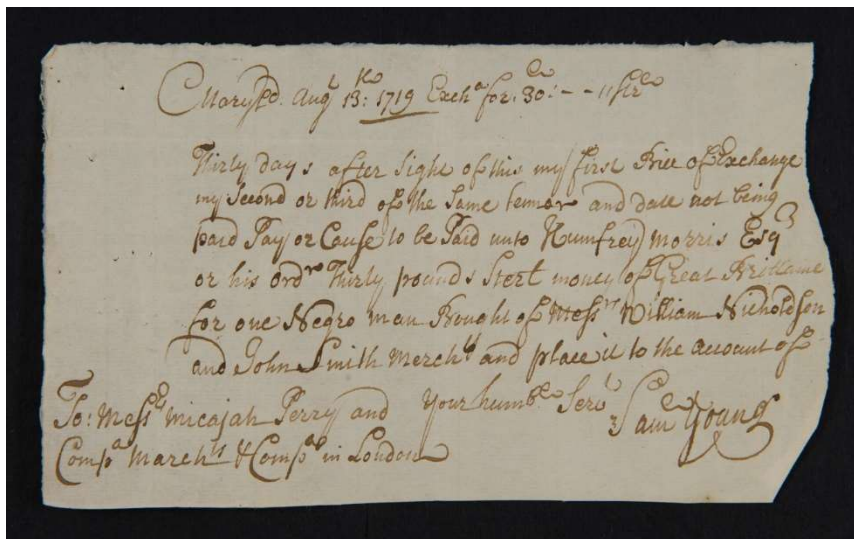 Maryld. Augt 13th: 1719 Excha for. 30: - - " Ster
Thirty days after Sight of this my first Bill of Exchange
my Second or third of the Same tennor and date not being
paid Pay or Cause to be Paid unto Humfrey Morris Esqr
or his ordr Thirty pounds Sterl money of Great Brittaine
for one Negro man Bought of Messrs William Nicholdson
and John Smith Merchts and place it to the account of
Your humble Servt
Saml Young
To: Messrs Micajah Perry and
Compa Marchts & Compa in London